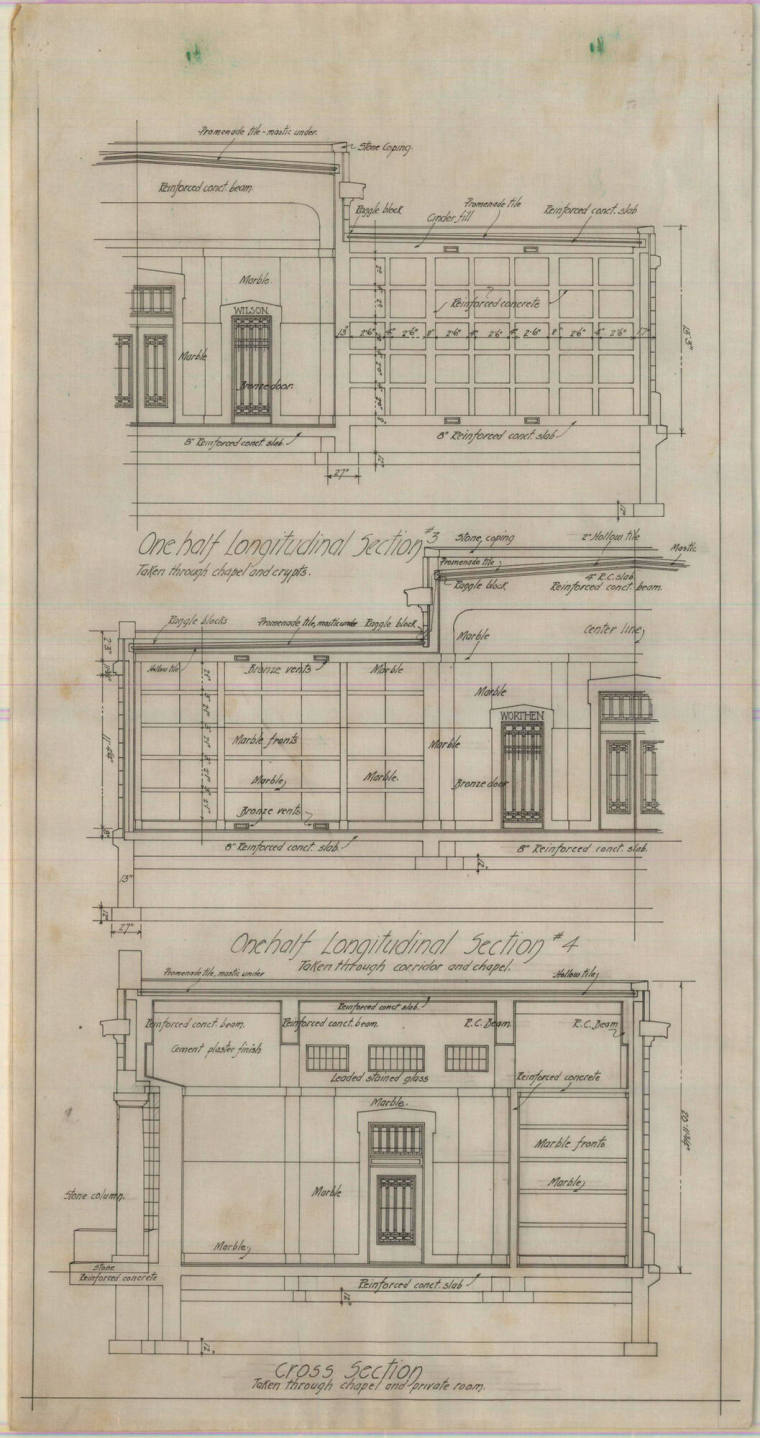 Promenade tile - mastic under.
Stone Coping.
Reinforced conct. beam
Raggle block
Promenade tile
Cinder fill
Reinforced conct. slab
Marble.
Reinforced concrete
WILSON.
13"
2'6"
2'6"
8"
2'6"
2'6"
2'6"
8"
2'6"
2'6"
17"
Marble
Bronze door
8" Reinforced conct. slab.
8" Reinforced conct. slab
27"
12"
One half Longitudinal Section #3
Taken through chapel and crypts.
Stone coping
2" Hollow tile
Mastic
Promenade tile
4" R.C. slab
Raggle block
Reinforced conct. beam.
Raggle blocks
Promenade tile, mastic under
Raggle block
Marble
Center line
Hollow tile
Bronze vents
Marble
Marble
WORTHEN
Marble fronts
Marble
Marble
Marble.
Bronze door
Bronze vents
8" Reinforced conct. slab
8" Reinforced conct. slab.
12"
13"
12"
27"
One half Longitudinal Section #4
Taken through corridor and chapel.
Promenade tile, mastic under
Hollow tile
Reinforced conct slab.
Reinforced conct. beam.
Reinforced conct. beam.
R.C. Beam
R.C. Beam
Cement plaster finish
Leaded stained glass
Reinforced concrete
Marble.
Marble fronts
Marble
Marble
Stone column.
Marble
Stone
Reinforced concrete
Reinforced conct. slab
12"
12"
Cross Section
Taken through chapel and private room.